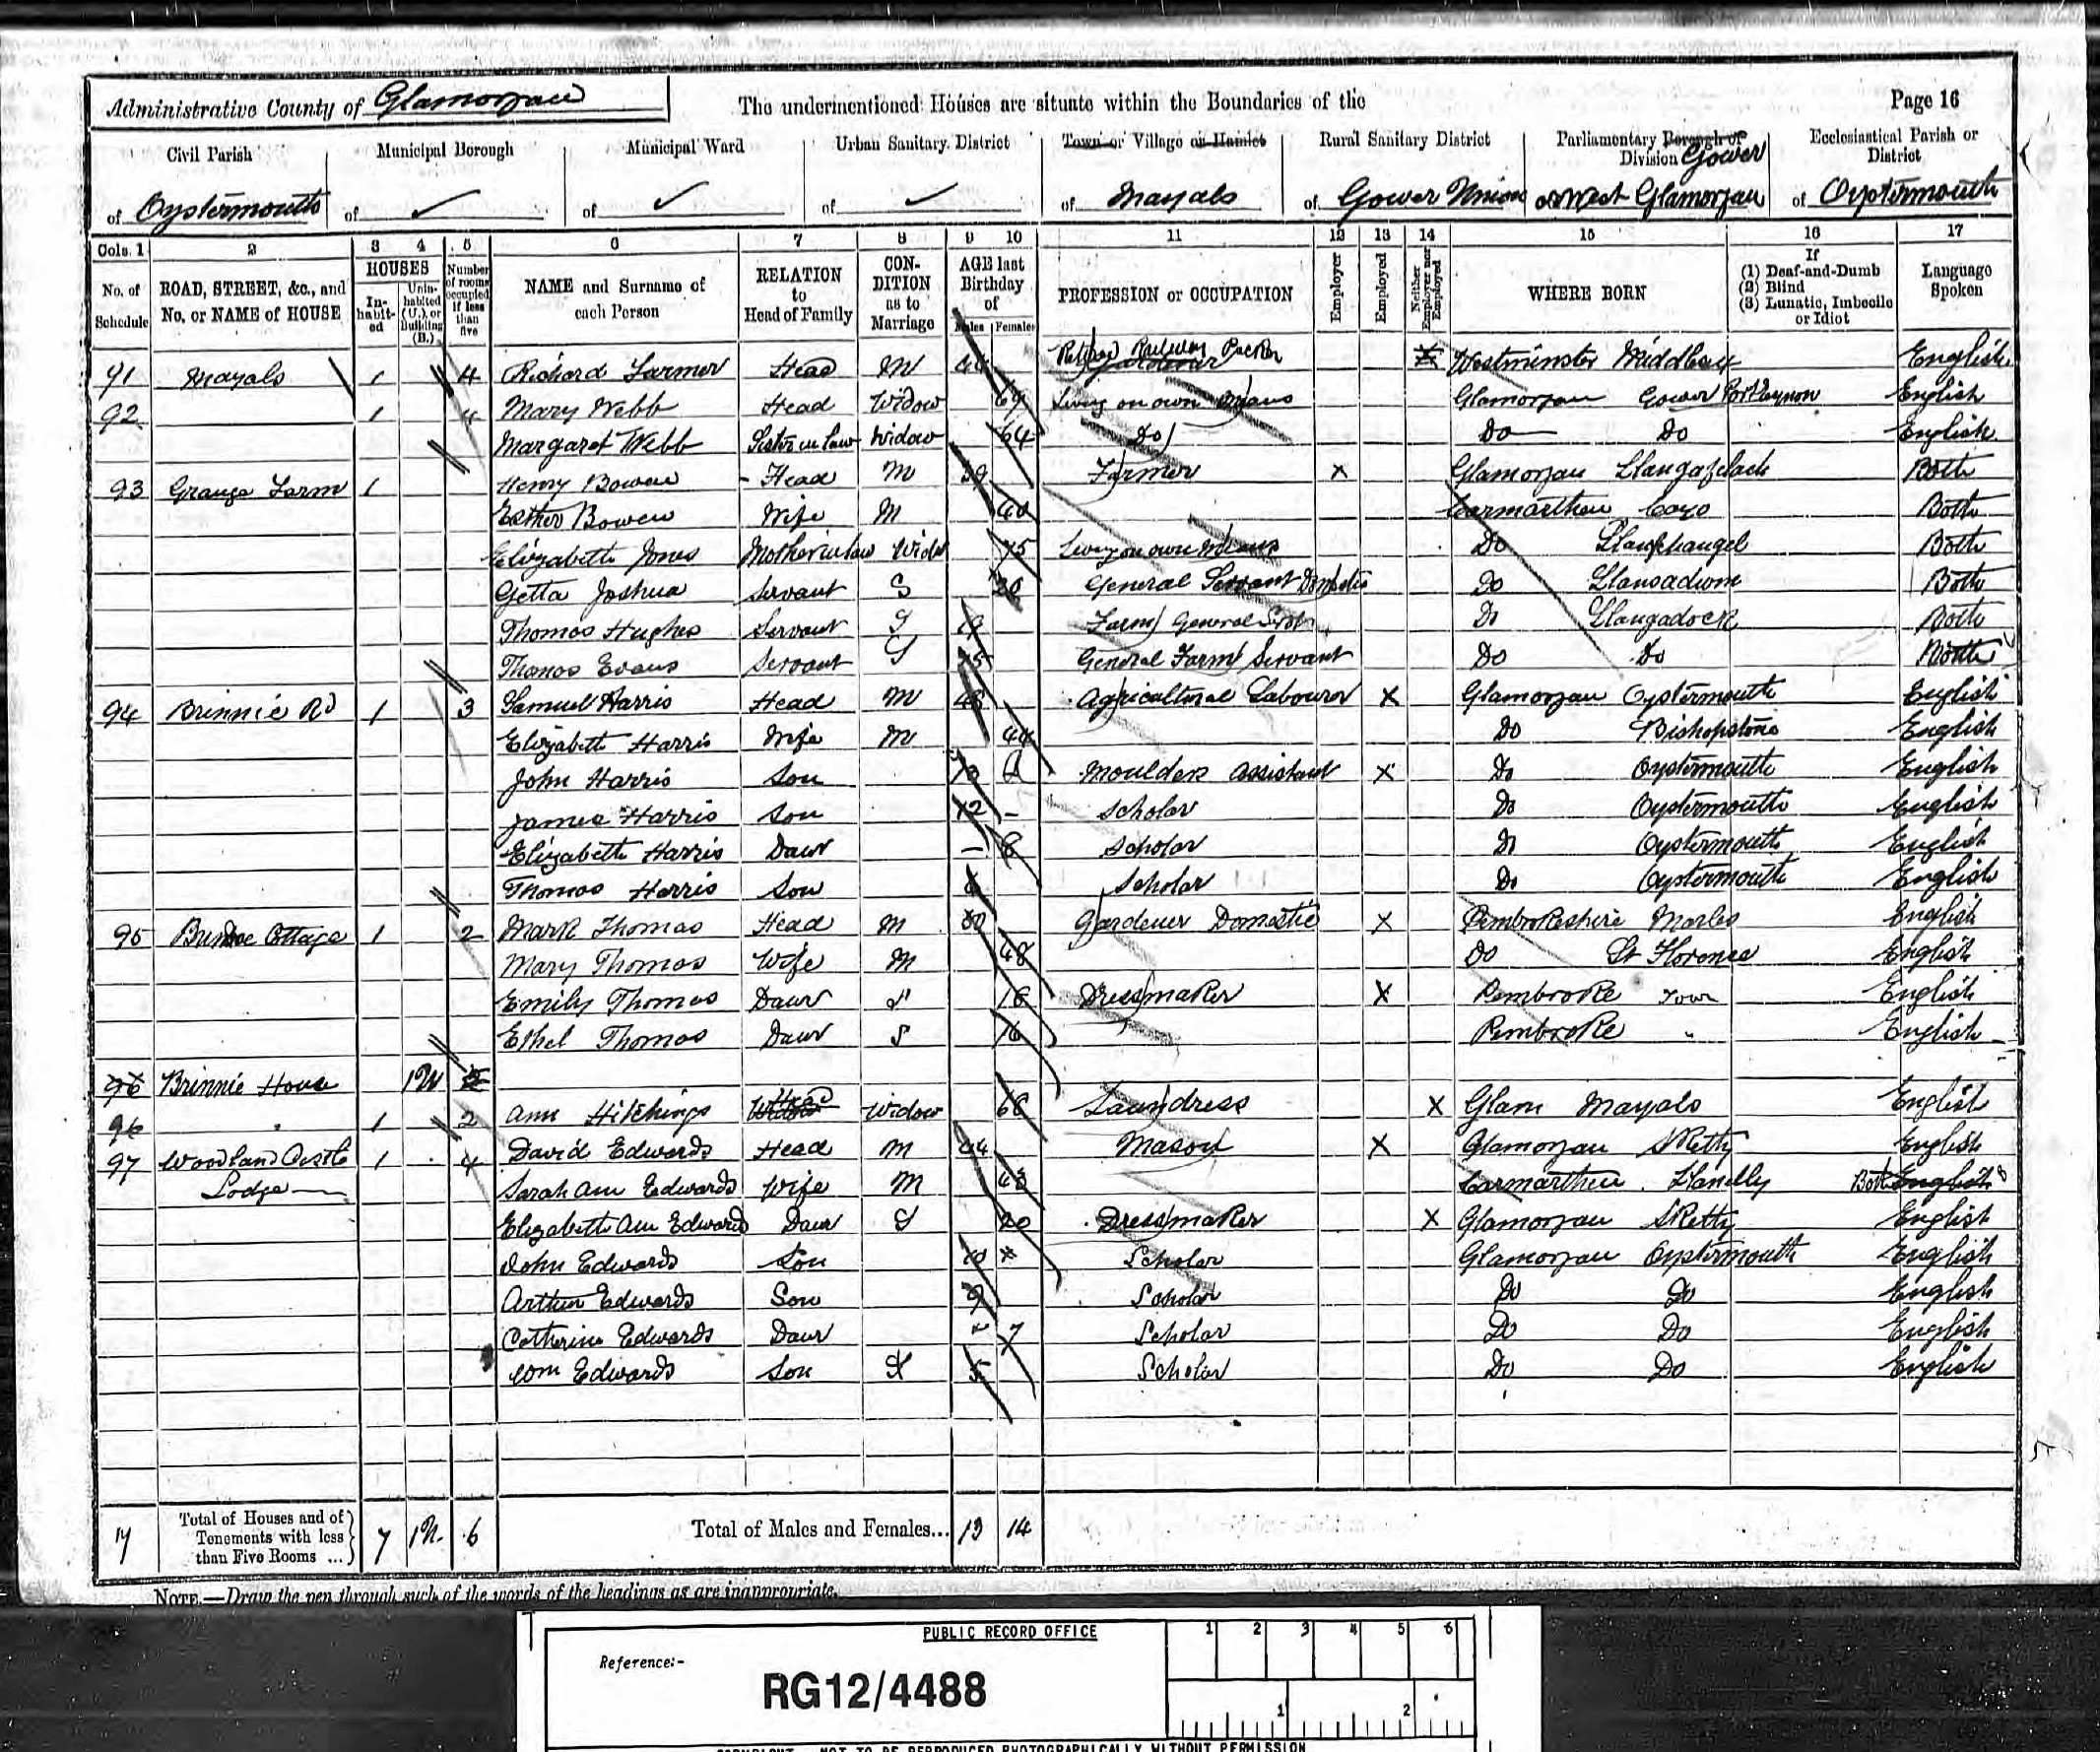 Administrative County of Glamorgan The undermentioned Houses are situate within the Boundaries of the Page 16
Civil Parish Municipal Borough Municipal Ward Urban Sanitary District Town or Village or Hamlet Rural Sanitary District Parliamentary Borough or Division Gower Ecclesiastical Parish or District
of Oystermouth of ✓ of ✓ of ✓ of Mayals of Gower Union of West Glamorgan of Oystermouth
Cols. 1 2 3 4 5 6 7 8 9 10 11 12 13 14 15 16 17
No. of Schedule ROAD, STREET, &c., and No. or NAME of HOUSE HOUSES Inhabited Uninhabited (U.), or Building (B.) Number of rooms occupied if less than five NAME and Surname of each Person RELATION to Head of Family CONDITION as to Marriage AGE last Birthday of Males Females PROFESSION or OCCUPATION Employer Employed Neither Employer nor Employed WHERE BORN If (1) Deaf-and-Dumb (2) Blind (3) Lunatic, Imbecile or Idiot Language Spoken
91 Mayals 1 4 Richard Farmer Head M Retired Railway Packer X Westminster Middlesex English
92 1 4 Mary Webb Head Widow 69 Living on own Means Glamorgan Gower Port Eynon English
Margaret Webb Sister in law Widow 64 Do Do Do English
93 Grange Farm 1 Henry Bowen Head M 39 Farmer X Glamorgan Llangafelach Both
Esther Bowen Wife M 40 Carmarthen Cayo Both
Elizabeth Jones Mother in law Widw 75 Living on own Means Do Llanfihangel Both
Getta Joshua Servant S 20 General Servant Domestic Do Llansadwrn Both
Thomas Hughes Servant S Farm General Do Llangadock Both
Thomas Evans Servant S General Farm Servant Do Do Both
94 Brinnie Rd 1 3 Samuel Harris Head M 48 Agricultural Labourer X Glamorgan Oystermouth English
Elizabeth Harris Wife M 44 Do Bishopstone English
John Harris Son Moulders Assistant X Do Oystermouth English
James Harris Son 12 – Scholar Do Oystermouth English
Elizabeth Harris Daur – 8 Scholar Do Oystermouth English
Thomas Harris Son Scholar Do Oystermouth English
95 Cottage 1 2 Mark Thomas Head M 50 Gardener Domestic X Pembrokeshire Marles English
Mary Thomas Wife M 48 Do St Florence English
Emily Thomas Daur S 18 Dressmaker X Pembroke Town English
Ethel Thomas Daur S 16 Pembroke " English
96 Brinnie House 1U
96 " 1 2 Ann Hitchings Head Widow 60 Laundress X Glam Mayals English
97 Woodland Castle 1 4 David Edwards Head M 44 Mason X Glamorgan Sketty English
Lodge Sarah Ann Edwards Wife M 43 Carmarthen Llanelly Both English
Elizabeth Ann Edwards Daur S 20 Dressmaker X Glamorgan Sketty English
John Edwards Son 10 Scholar Glamorgan Oystermouth English
Arthur Edwards Son 9 Scholar Do Do English
Catherine Edwards Daur 7 Scholar Do Do English
Wm Edwards Son 5 Scholar Do Do English
7 Total of Houses and of Tenements with less than Five Rooms ... 7 1U. 6 Total of Males and Females... 13 14
NOTE.—Draw the pen through such of the words of the headings as are inappropriate.
PUBLIC RECORD OFFICE 1 2 3 4 5 6
Reference:-
RG12/4488
1 2
COPYRIGHT - NOT TO BE REPRODUCED PHOTOGRAPHICALLY WITHOUT PERMISSION